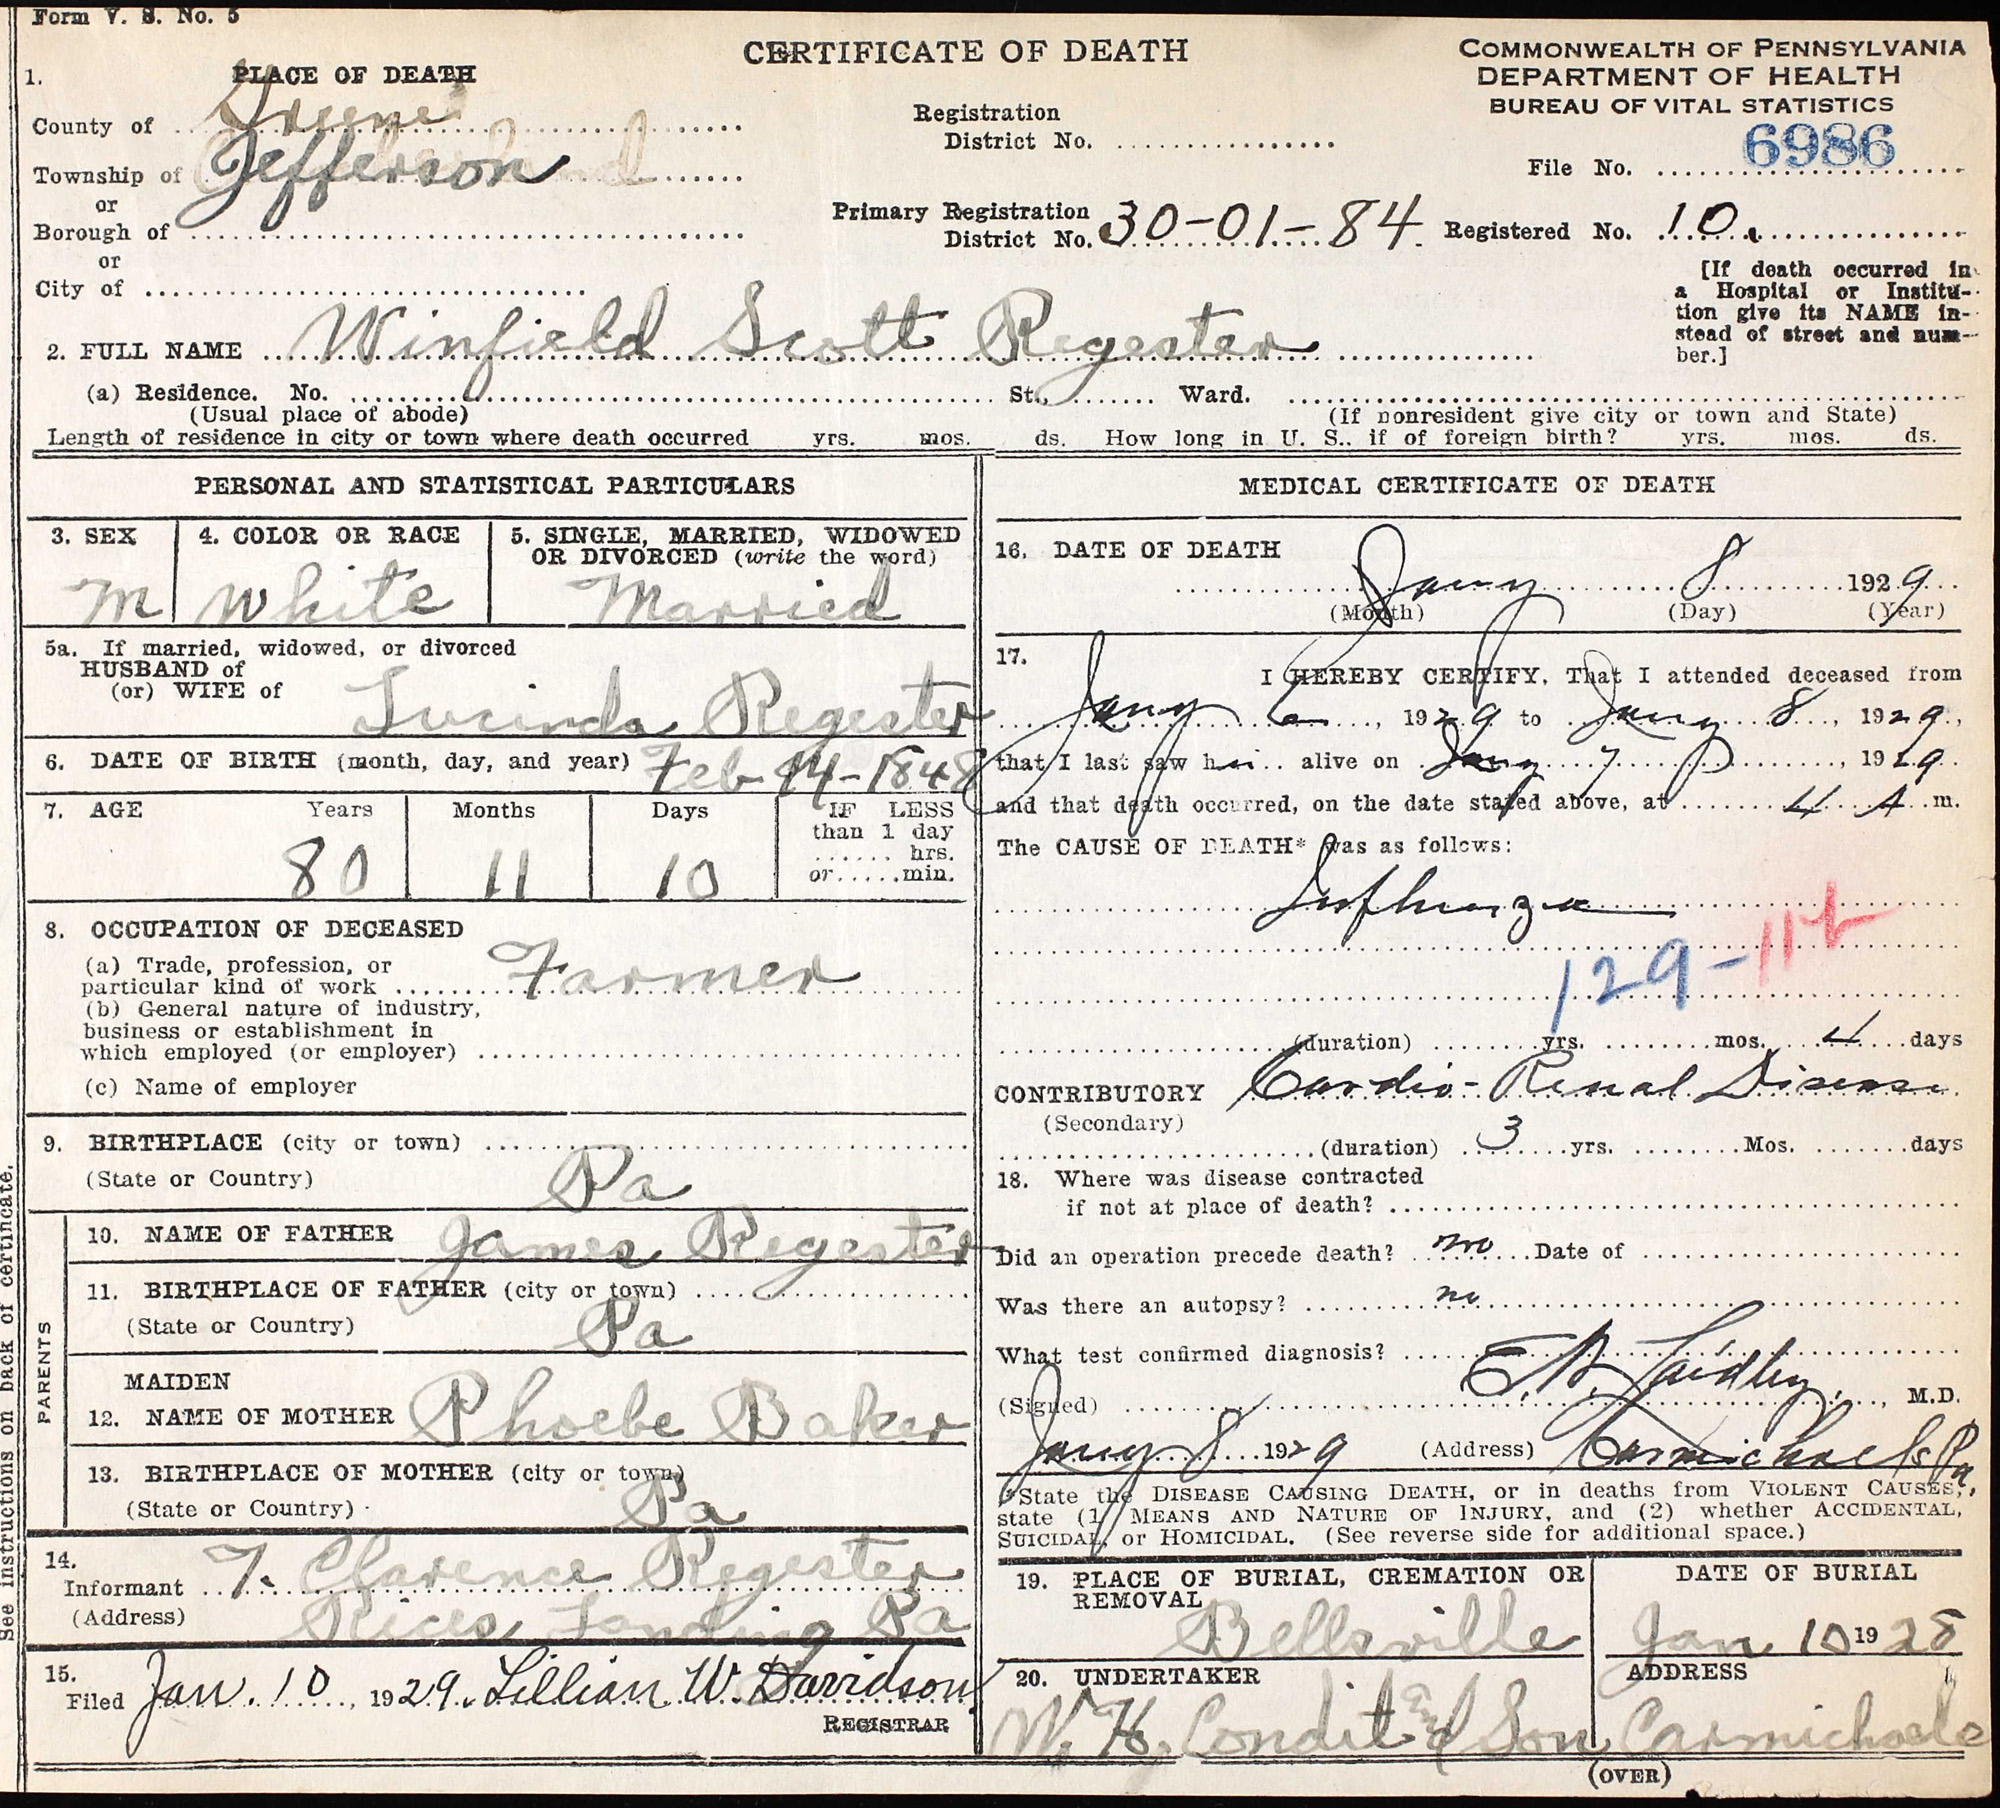 Form V. S. No. 5
CERTIFICATE OF DEATH
COMMONWEALTH OF PENNSYLVANIA
DEPARTMENT OF HEALTH
BUREAU OF VITAL STATISTICS
1. PLACE OF DEATH
County of Greene
Township of Jefferson
or
Borough of
or
City of
Registration
District No.
File No. 6986
Primary Registration
District No. 30-01-84
Registered No. 10.
[If death occurred in
a Hospital or Institu-
tion give its NAME in-
stead of street and num-
ber.]
2. FULL NAME Winfield Scott Regester
(a) Residence. No. St., Ward.
(Usual place of abode) (If nonresident give city or town and State)
Length of residence in city or town where death occurred yrs. mos. ds. How long in U. S., if of foreign birth? yrs. mos. ds.
PERSONAL AND STATISTICAL PARTICULARS
3. SEX
M
4. COLOR OR RACE
White
5. SINGLE, MARRIED, WIDOWED
OR DIVORCED (write the word)
Married
5a. If married, widowed, or divorced
HUSBAND of
(or) WIFE of Lucinda Regester
6. DATE OF BIRTH (month, day, and year) Feb 14-1848
7. AGE Years Months Days IF LESS
than 1 day
hrs.
or min.
80 11 10
8. OCCUPATION OF DECEASED
(a) Trade, profession, or
particular kind of work Farmer
(b) General nature of industry,
business or establishment in
which employed (or employer)
(c) Name of employer
9. BIRTHPLACE (city or town)
(State or Country) Pa
PARENTS
10. NAME OF FATHER James Regester
11. BIRTHPLACE OF FATHER (city or town)
(State or Country) Pa
MAIDEN
12. NAME OF MOTHER Phoebe Baker
13. BIRTHPLACE OF MOTHER (city or town)
(State or Country) Pa
14.
Informant T. Clarence Regester
(Address) Rices Landing Pa
15.
Filed Jan. 10, 1929. Lillian W. Davidson
REGISTRAR
MEDICAL CERTIFICATE OF DEATH
16. DATE OF DEATH
Jany 8 1929
(Month) (Day) (Year)
17.
I HEREBY CERTIFY, That I attended deceased from
Jany 6, 1929 to Jany 8, 1929,
that I last saw hi alive on Jany 7, 1929
and that death occurred, on the date stated above, at 4 A m.
The CAUSE OF DEATH* was as follows:
Influenza
129-11b
(duration) yrs. mos. 4 days
CONTRIBUTORY Cardio-Renal Disease
(Secondary)
(duration) 3 yrs. Mos. days
18. Where was disease contracted
if not at place of death?
Did an operation precede death? no Date of
Was there an autopsy? no
What test confirmed diagnosis?
(Signed) Laidley, M.D.
Jany 8 1929 (Address) Carmichaels Pa
*State the DISEASE CAUSING DEATH, or in deaths from VIOLENT CAUSES,
state (1) MEANS AND NATURE OF INJURY, and (2) whether ACCIDENTAL,
SUICIDAL, or HOMICIDAL. (See reverse side for additional space.)
19. PLACE OF BURIAL, CREMATION OR
REMOVAL
Bellsville
DATE OF BURIAL
Jan 10 1928
20. UNDERTAKER
W. H. Condit and Son
ADDRESS
Carmichaels
(OVER)
See instructions on back of certificate.